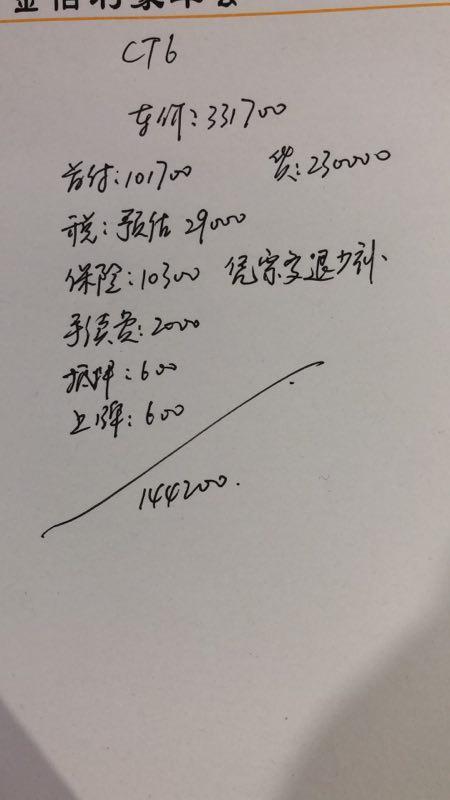 CT6
车价:331700
首付:101700 贷:230000
税:预估 29000
保险:10300 凭票多退少补、
手续费:2000
抵押:600
上牌:600
144200.